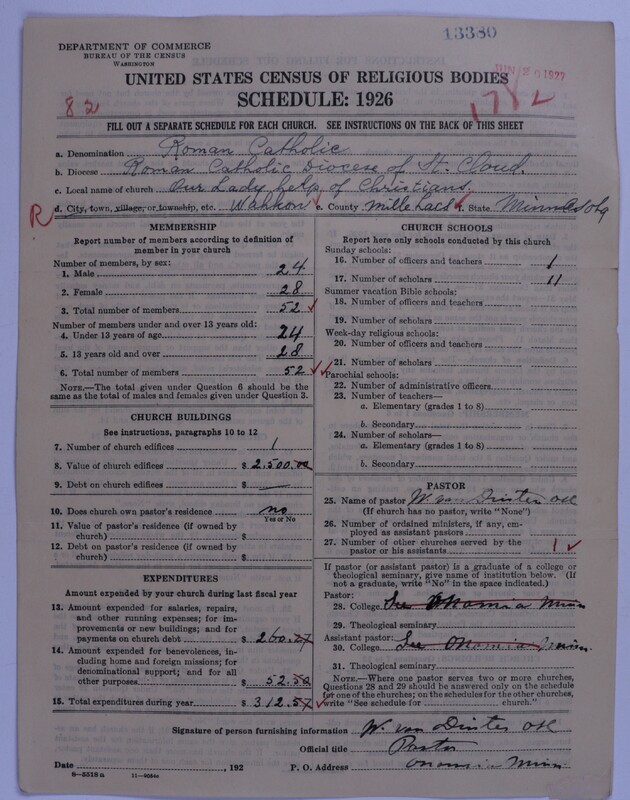 13380
DEPARTMENT OF COMMERCE
BUREAU OF THE CENSUS
WASHINGTON
UNITED STATES CENSUS OF RELIGIOUS BODIES
SCHEDULE: 1926
82
1782
FILL OUT A SEPARATE SCHEDULE FOR EACH CHURCH. SEE INSTRUCTIONS ON THE BACK OF THIS SHEET
a. Denomination Roman Catholic
b. Diocese Roman Catholic Diocese of St. Cloud.
c. Local name of church Our Lady help of Christians.
R d. City, town, village, or township, etc. Wahkon e. County Mille Lacs f. State Minnesota
MEMBERSHIP
Report number of members according to definition of
member in your church
Number of members, by sex:
1. Male 24
2. Female 28
3. Total number of members 52
Number of members under and over 13 years old:
4. Under 13 years of age 24
5. 13 years old and over 28
6. Total number of members 52
NOTE.—The total given under Question 6 should be
same as the total of males and females given under Question 3.
CHURCH BUILDINGS
See instructions, paragraphs 10 to 12
7. Number of church edifices 1
8. Value of church edifices $ 2.500.00
9. Debt on church edifices $
10. Does church own pastor's residence no
Yes or No
11. Value of pastor's residence (if owned by
church) $
12. Debt on pastor's residence (if owned by
church) $
EXPENDITURES
Amount expended by your church during last fiscal year
13. Amount expended for salaries, repairs,
and other running expenses; for im-
provements or new buildings; and for
payments on church debt $ 260.27
14. Amount expended for benevolences, in-
cluding home and foreign missions; for
denominational support; and for all
other purposes $ 52.30
15. Total expenditures during year $ 312.57
CHURCH SCHOOLS
Report here only schools conducted by this church
Sunday schools:
16. Number of officers and teachers 1
17. Number of scholars 11
Summer vacation Bible schools:
18. Number of officers and teachers
19. Number of scholars
Week-day religious schools:
20. Number of officers and teachers
21. Number of scholars
Parochial schools:
22. Number of administrative officers
23. Number of teachers—
a. Elementary (grades 1 to 8)
b. Secondary
24. Number of scholars—
a. Elementary (grades 1 to 8)
b. Secondary
PASTOR
25. Name of pastor W. van Dinter
(If church has no pastor, write "None")
26. Number of ordained ministers, if any, em-
ployed as assistant pastors
27. Number of other churches served by the
pastor or his assistants 1
If pastor (or assistant pastor) is a graduate of a college or
theological seminary, give name of institution below. (If
not a graduate, write "No" in the space indicated.)
Pastor:
28. College See Onamia Minn
29. Theological seminary
Assistant pastor:
30. College See Onamia Minn.
31. Theological seminary
NOTE.—Where one pastor serves two or more churches,
Questions 28 and 29 should be answered only on the schedule
for one of the churches; on the schedules for the other churches,
write "See schedule for church."
Signature of person furnishing information W. van Dinter
Official title Pastor
Date , 192 P. O. Address Onamia Minn.
8-5518 a